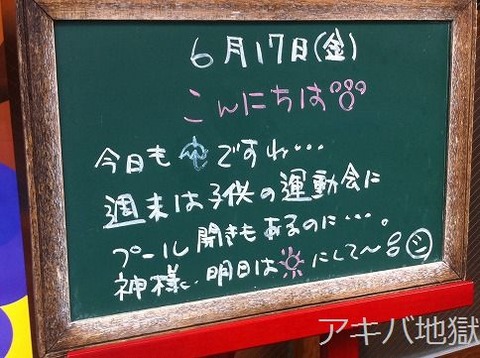 6月17日(金)
こんにちは
今日も☂ですね…
週末は子供の運動会に
プール開きもあるのに…。
神様、明日は☀にして〜
アキバ地獄